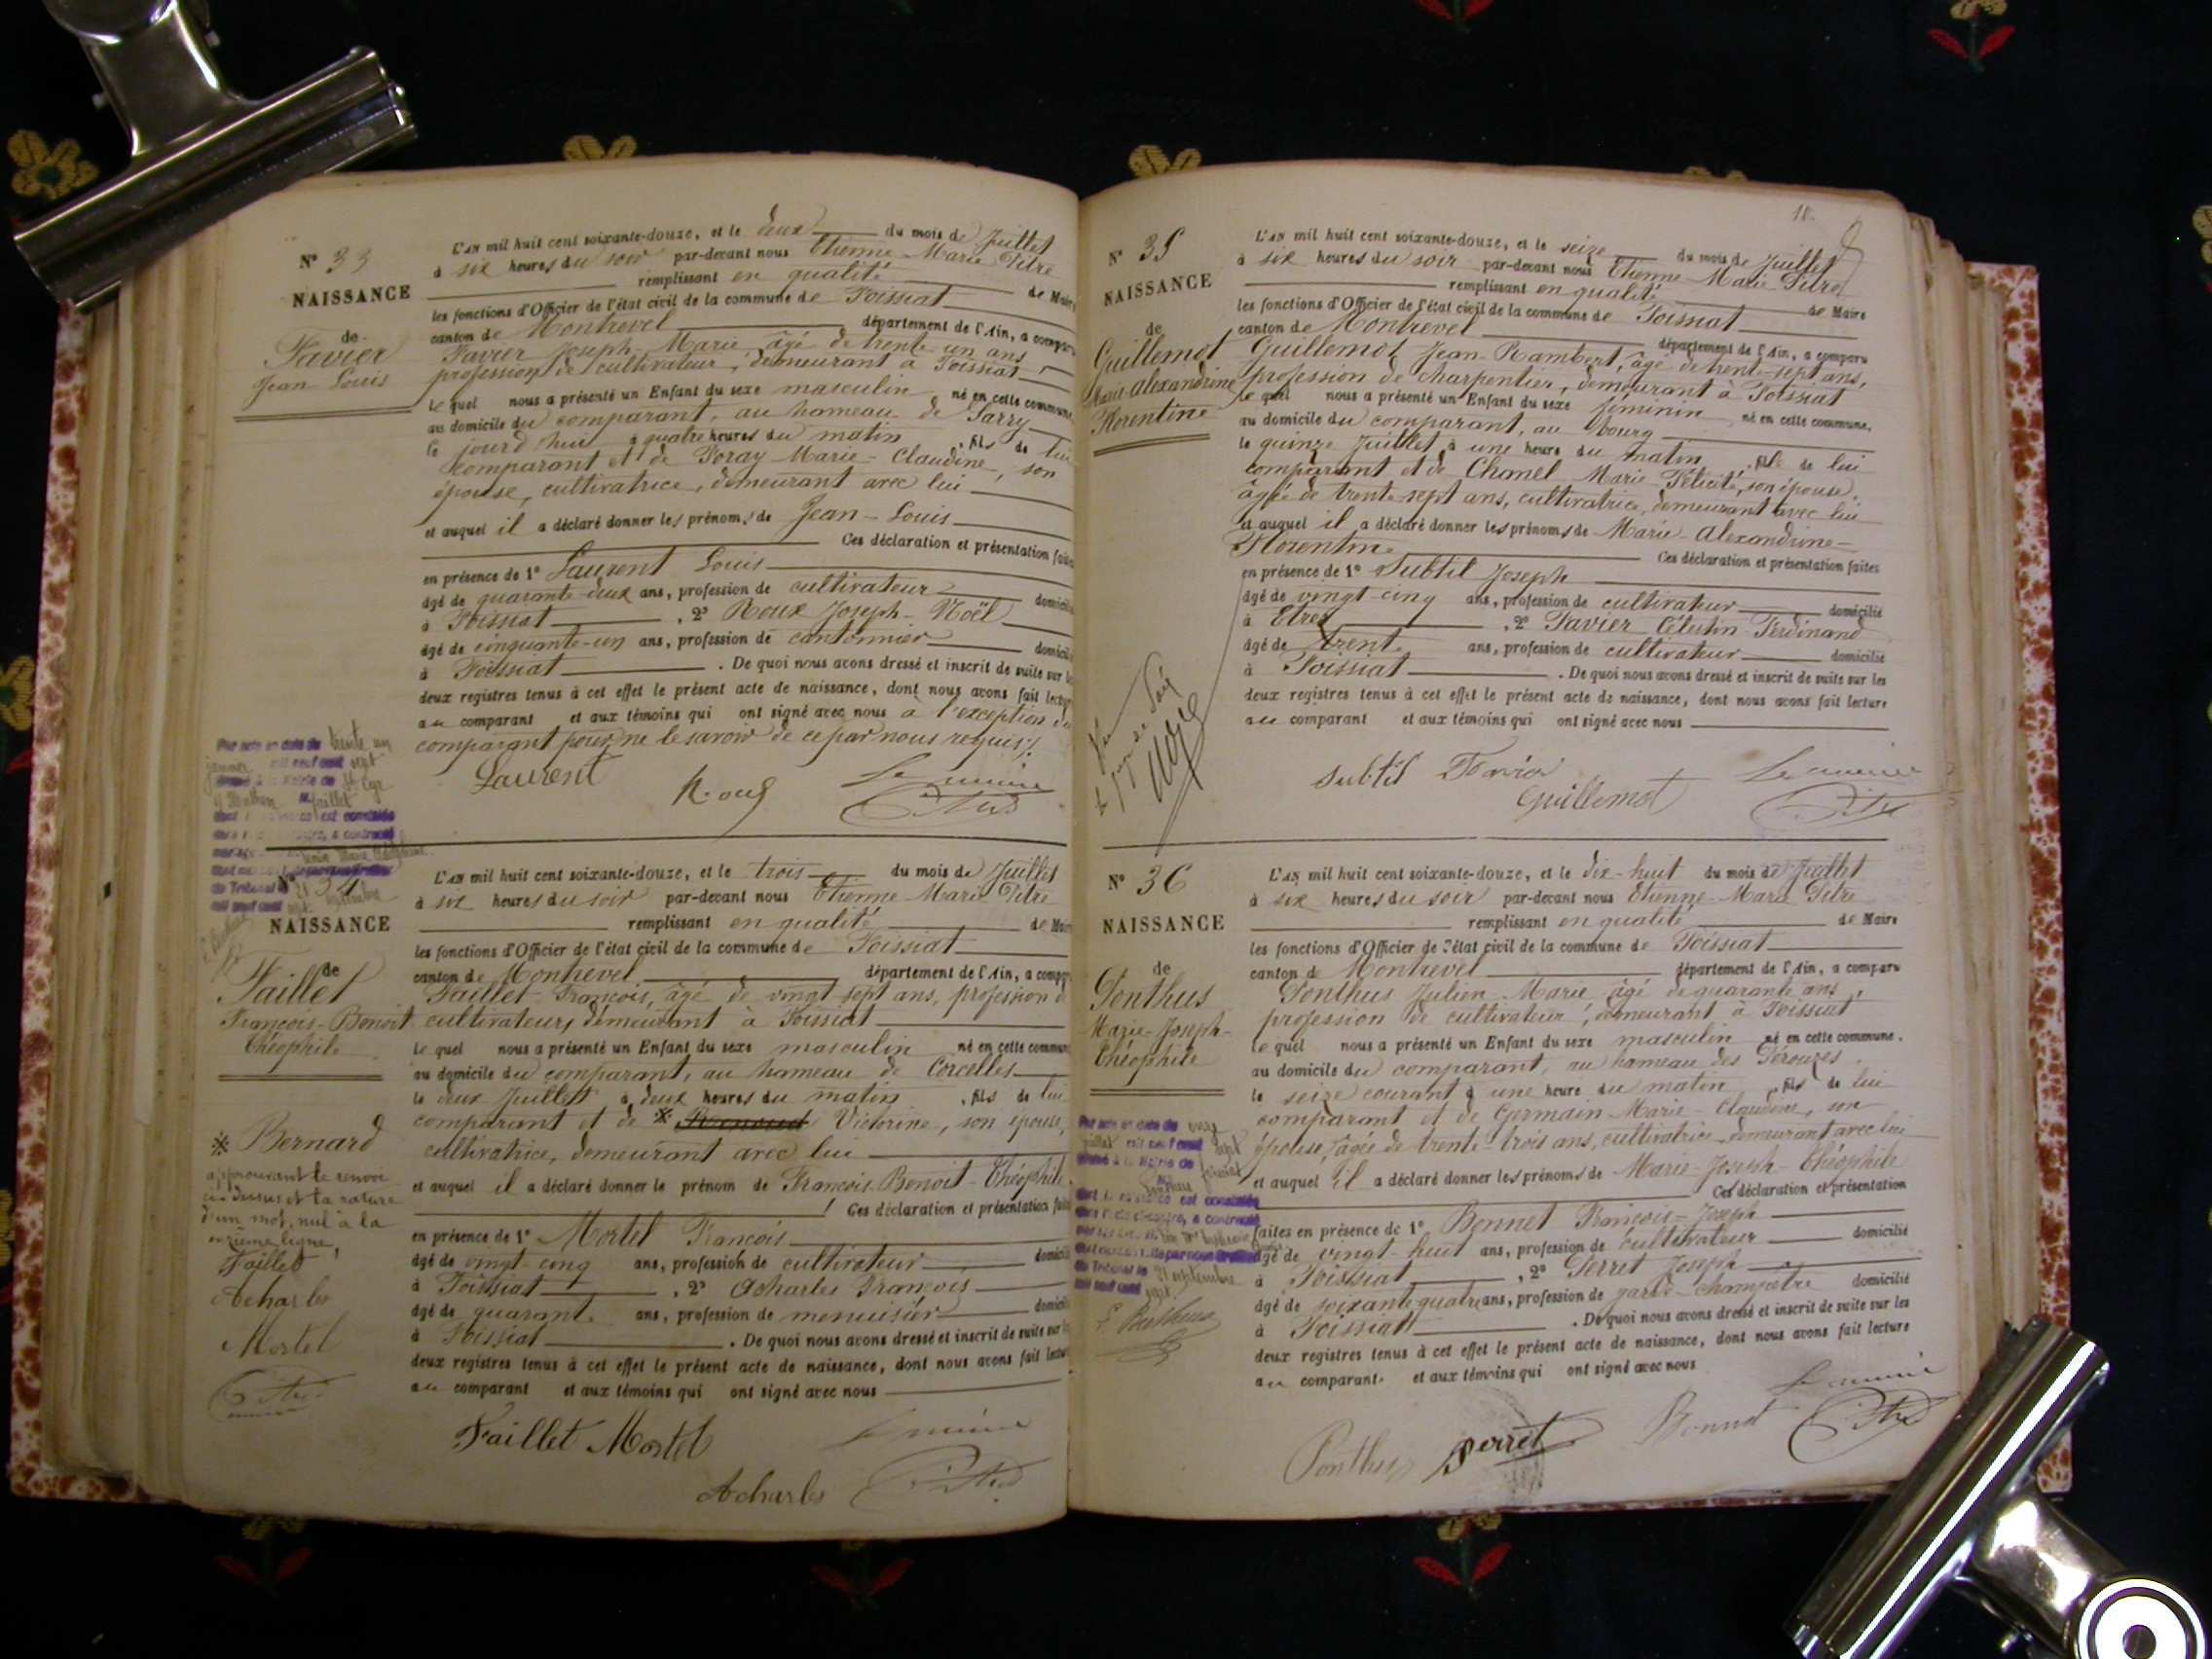 N° 33
NAISSANCE
de
Favier
Jean-Louis
L'AN mil huit cent soixante-douze, et le deux du mois de Juillet
à six heures du soir par-devant nous Etienne-Marie Pitre
remplissant en qualité de Maire
les fonctions d'Officier de l'état civil de la commune de Foissiat
canton de Montrevel département de l'Ain, a comparu
Favier Joseph-Marie, âgé de trente-un ans,
profession de cultivateur, demeurant à Foissiat
lequel nous a présenté un Enfant du sexe masculin né en cette commune,
au domicile du comparant, au hameau de Sarry
le jourd'hui à quatre heures du matin, fils de lui
comparant et de Foray Marie-Claudine, son
épouse, cultivatrice, demeurant avec lui
et auquel il a déclaré donner les prénoms de Jean-Louis
Ces déclaration et présentation faites
en présence de 1° Laurent Louis
âgé de quarante-deux ans, profession de cultivateur domicilié
à Foissiat, 2° Roux Joseph-Noël
âgé de cinquante-un ans, profession de cantonnier domicilié
à Foissiat. De quoi nous avons dressé et inscrit de suite sur les
deux registres tenus à cet effet le présent acte de naissance, dont nous avons fait lecture
au comparant et aux témoins qui ont signé avec nous à l'exception du
comparant pour ne le savoir de ce par nous requis./.
Laurent Roux Le maire
Pitre
Par acte en date du trente un
janvier mil neuf cent sept
N° 34
NAISSANCE
de
Faillet
François-Benoit
Théophile
L'AN mil huit cent soixante-douze, et le trois du mois de Juillet
à six heures du soir par-devant nous Etienne-Marie Pitre
remplissant en qualité de Maire
les fonctions d'Officier de l'état civil de la commune de Foissiat
canton de Montrevel département de l'Ain, a comparu
Faillet François, âgé de vingt sept ans, profession de
cultivateur, demeurant à Foissiat
lequel nous a présenté un Enfant du sexe masculin né en cette commune
au domicile du comparant, au hameau de Corcelles
le deux Juillet à deux heures du matin, fils de lui
comparant et de ※ Renoud Victorine, son épouse,
cultivatrice, demeurant avec lui
et auquel il a déclaré donner le prénom de François Benoit-Théophile
Ces déclaration et présentation faites
en présence de 1° Mortel François
âgé de vingt-cinq ans, profession de cultivateur domicilié
à Foissiat, 2° Acharles François
âgé de quarante ans, profession de menuisier domicilié
à Foissiat. De quoi nous avons dressé et inscrit de suite sur les
deux registres tenus à cet effet le présent acte de naissance, dont nous avons fait lecture
au comparant et aux témoins qui ont signé avec nous
※ Bernard
approuvant le renvoi
ci-dessus et la rature
d'un mot, nul à la
onzième ligne
Faillet
Acharles
Mortel
Pitre
Faillet Mortel Le maire
Acharles Pitre
18.
N° 35
NAISSANCE
de
Guillemot
Marie-Alexandrine
Florentine
L'AN mil huit cent soixante-douze, et le seize du mois de Juillet
à six heures du soir par-devant nous Etienne-Marie Pitre
remplissant en qualité de Maire
les fonctions d'Officier de l'état civil de la commune de Foissiat
canton de Montrevel département de l'Ain, a comparu
Guillemot Jean-Rambert, âgé de trente-sept ans,
profession de charpentier, demeurant à Foissiat
lequel nous a présenté un Enfant du sexe féminin né en cette commune,
au domicile du comparant, au bourg
le quinze Juillet à une heure du matin, fille de lui
comparant et de Chanel Marie-Félicité, son épouse,
âgée de trente-sept ans, cultivatrice, demeurant avec lui
et auquel il a déclaré donner les prénoms de Marie-Alexandrine-
Florentine Ces déclaration et présentation faites
en présence de 1° Subtil Joseph
âgé de vingt-cinq ans, profession de cultivateur domicilié
à Etrez, 2° Favier Célestin Ferdinand
âgé de trente ans, profession de cultivateur domicilié
à Foissiat. De quoi nous avons dressé et inscrit de suite sur les
deux registres tenus à cet effet le présent acte de naissance, dont nous avons fait lecture
au comparant et aux témoins qui ont signé avec nous
Subtil Favier Le maire
Guillemot Pitre
N° 36
NAISSANCE
de
Ponthus
Marie-Joseph-
Théophile
L'AN mil huit cent soixante-douze, et le dix-huit du mois de Juillet
à six heures du soir par-devant nous Etienne-Marie Pitre
remplissant en qualité de Maire
les fonctions d'Officier de l'état civil de la commune de Foissiat
canton de Montrevel département de l'Ain, a comparu
Ponthus Julien-Marie âgé de quarante ans,
profession de cultivateur, demeurant à Foissiat
lequel nous a présenté un Enfant du sexe masculin né en cette commune.
au domicile du comparant, au hameau des Pérouzes
le seize courant à une heure du matin, fils de lui
comparant et de Germain Marie-Claudine, son
épouse, âgée de trente-trois ans, cultivatrice, demeurant avec lui
et auquel il a déclaré donner les prénoms de Marie-Joseph-Théophile
Ces déclaration et présentation
faites en présence de 1° Bonnet François-Joseph
âgé de vingt-huit ans, profession de cultivateur domicilié
à Foissiat, 2° Perret Joseph
âgé de soixante quatre ans, profession de garde-champêtre domicilié
à Foissiat. De quoi nous avons dressé et inscrit de suite sur les
deux registres tenus à cet effet le présent acte de naissance, dont nous avons fait lecture
au comparant et aux témoins qui ont signé avec nous
Par acte en date du onze
juillet mil neuf cent sept
Ponthus Perret Bonnet Le maire
Pitre